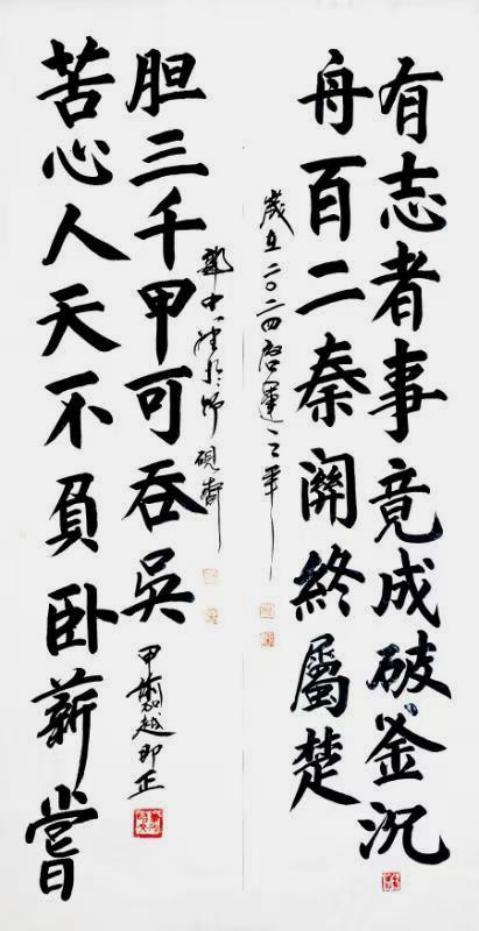 有志者事竟成破釜沉
舟百二秦關終屬楚
歲在二〇二四啓運之年
苦心人天不負卧薪嘗
胆三千甲可吞吳
即正
硯齋